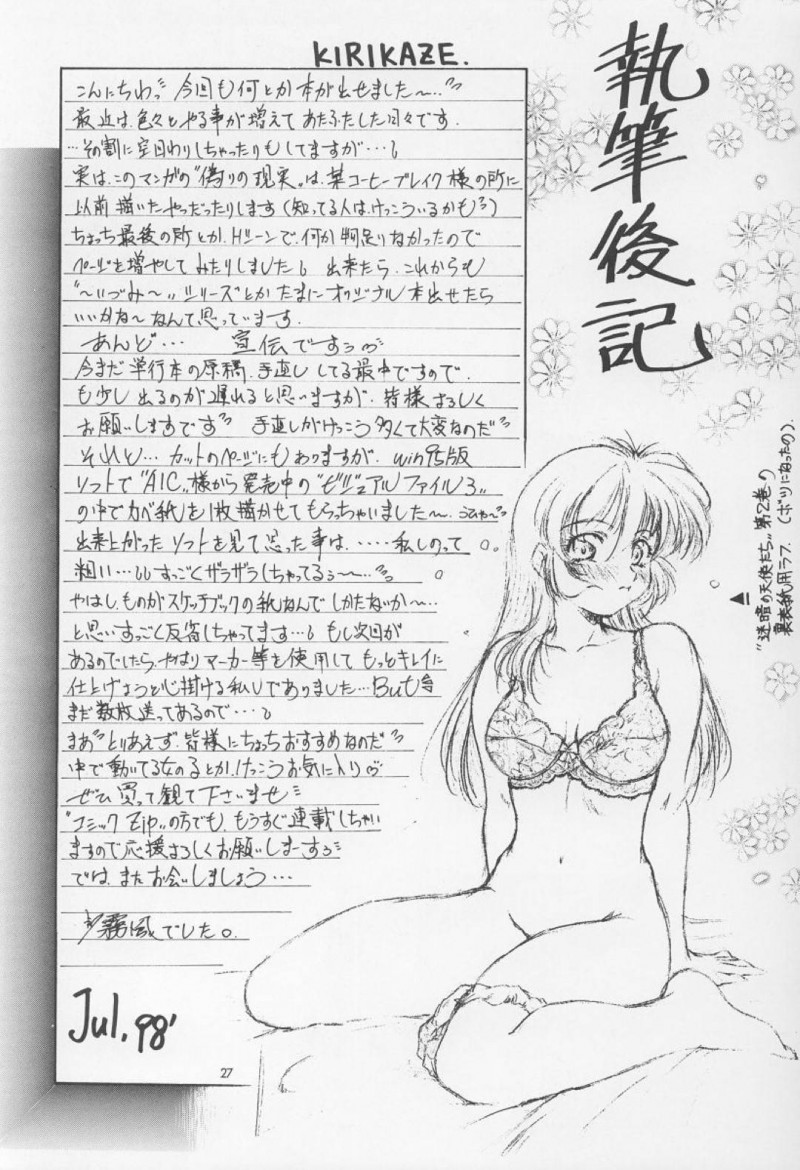 KIRIKAZE.
執筆後記
こんにちわっ 今回も何とか本が出せました〜…
最近は、色々とやる事が増えてあたふたした日々です。
…その割に空回りしちゃったりもしてますが…。
実は、このマンガの"偽りの現実"は、某コーヒーブレイク様の所に
以前描いたやつだったりします(知ってる人は、けっこういるかも)
ちょっち最後の所とか、Hシーンで、何か物足りなかったので
ページを増やしてみたりしました。出来たら、これからも
"〜いづみ〜"シリーズとかたまにオリジナル本出せたら
いいかな〜なんて思っています。
あんど… 宣伝ですぅ
今まだ単行本の原稿、手直ししてる最中ですので、
も少し出るのが遅れると思いますが、皆様よろしく
お願いしますです 手直しがけっこう多くて大変なのだ
それと…カットのページにもありますが、win95版
ソフトで"AIC"様から発売中の"ビジュアルファイル3"
の中でカベ紙を1枚描かせてもらっちゃいました〜。
出来上がったソフトを見て思った事は、‥‥私しのって
粗い… すっごくザラザラしちゃってるぅ〜…
やはし、ものがスケッチブックの紙なんでしかたないか〜…
と思いすっごく反省しちゃってます…。もし次回が
あるのでしたら、やはりマーカー等を使用してもっとキレイに
仕上げようと心掛ける私しでありました…But
まだ数枚送ってあるので…。
まあ とりあえず、皆様にちょっちおすすめなのだ
中で動いてる女のことか、けっこうお気に入り
ぜひ買って観て下さいませ
"コミックZip"の方でも、もうすぐ連載しちゃい
ますので応援よろしくお願いしまーすぅ
では、またお会いしましょう…
霧風でした。
Jul, 98'
27
"迷暗の天使たち"第2巻の
裏表紙用ラフ。(ボツになったの)。